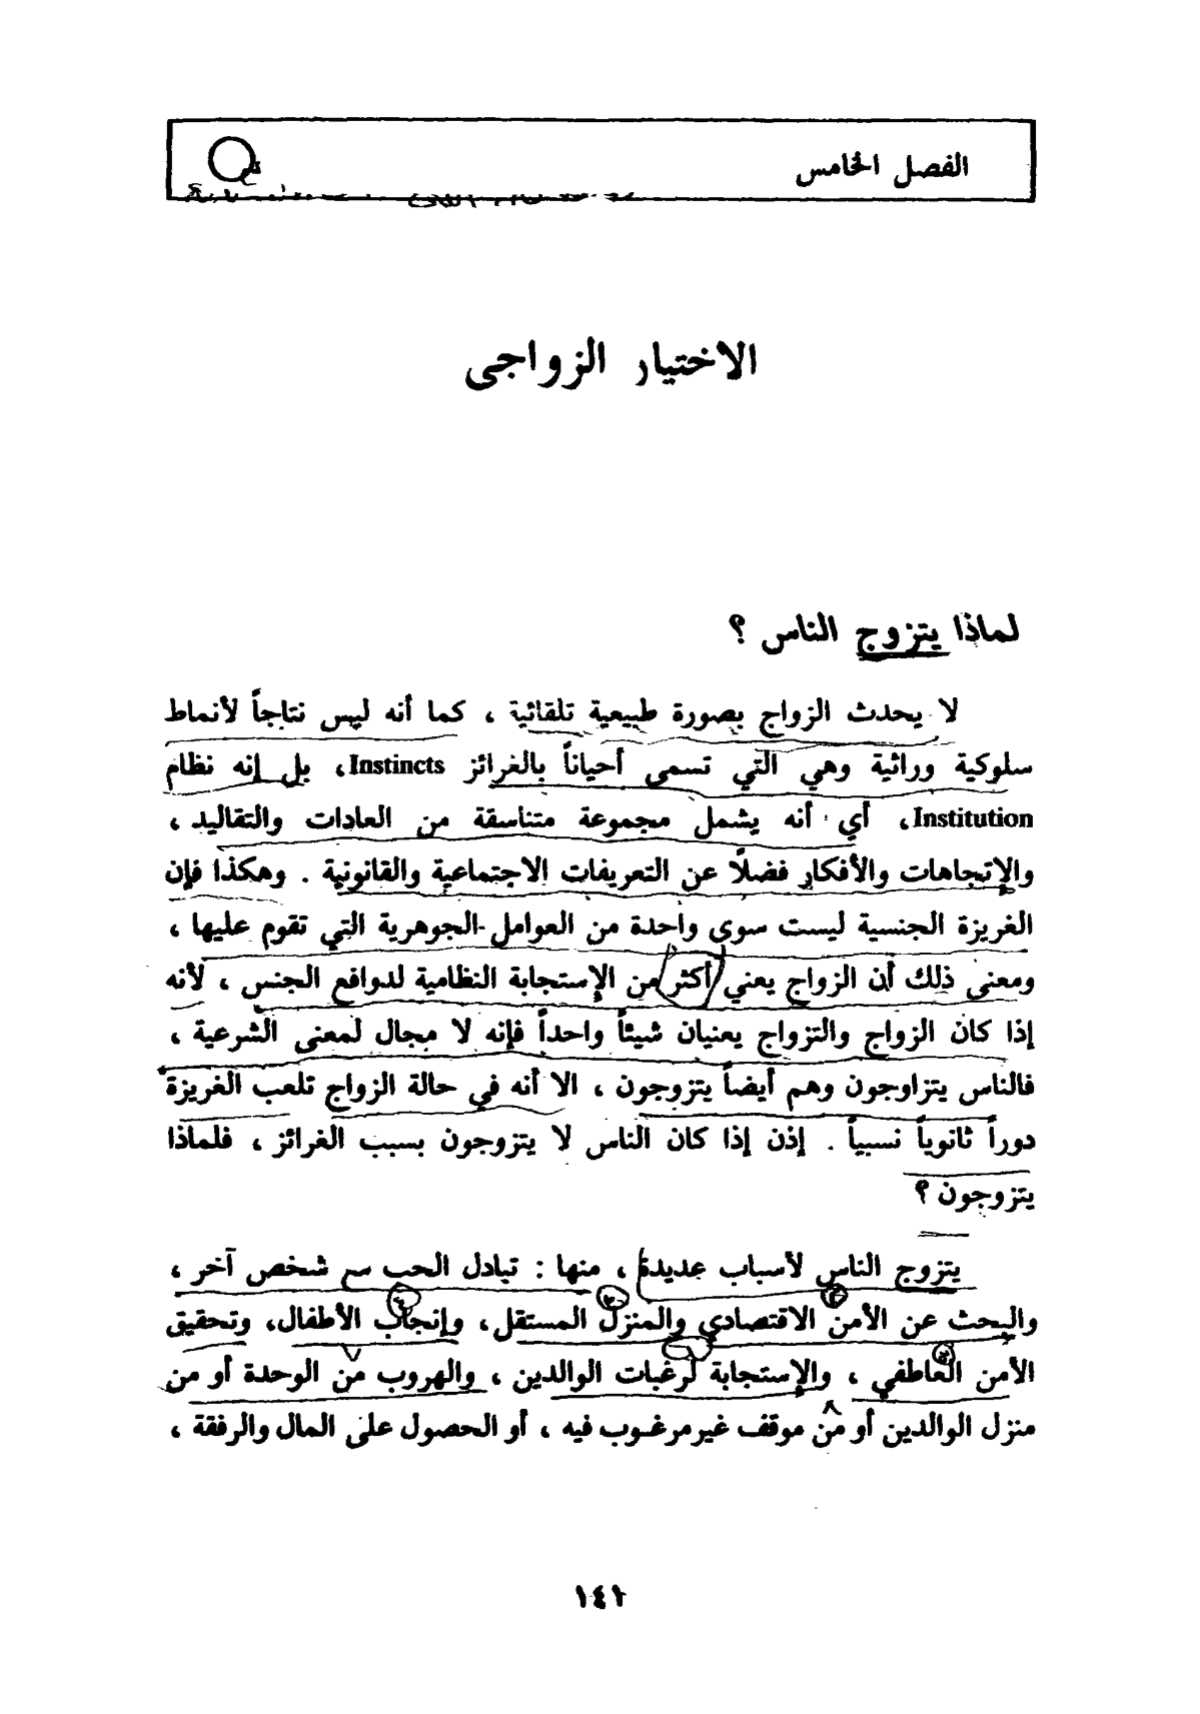 الفصل الخامس
الاختيار الزواجى
لماذا يتزوج الناس ؟
لا يحدث الزواج بصورة طبيعية تلقائية ، كما أنه ليس نتاجاً لأنماط
سلوكية وراثية وهي التي تسمى أحياناً بالغرائز Instincts، بل إنه نظام
Institution، أي أنه يشمل مجموعة متناسقة من العادات والتقاليد ،
والإتجاهات والأفكار فضلاً عن التعريفات الاجتماعية والقانونية . وهكذا فإن
الغريزة الجنسية ليست سوى واحدة من العوامل الجوهرية التي تقوم عليها ،
ومعنى ذلك أن الزواج يعني أكثر من الإستجابة النظامية لدوافع الجنس ، لأنه
إذا كان الزواج والتزواج يعنيان شيئاً واحداً فإنه لا مجال لمعنى الشرعية ،
فالناس يتزاوجون وهم أيضاً يتزوجون ، الا أنه في حالة الزواج تلعب الغريزة
دوراً ثانوياً نسبياً . إذن إذا كان الناس لا يتزوجون بسبب الغرائز ، فلماذا
يتزوجون ؟
يتزوج الناس لأسباب عديدة ، منها : تبادل الحب مع شخص آخر ،
والبحث عن الأمن الاقتصادي والمنزل المستقل ، وإنجاب الأطفال، وتحقيق
الأمن العاطفي ، والإستجابة لرغبات الوالدين ، والهروب من الوحدة أو من
منزل الوالدين أو من موقف غير مرغوب فيه ، أو الحصول على المال والرفقة ،
١٤١